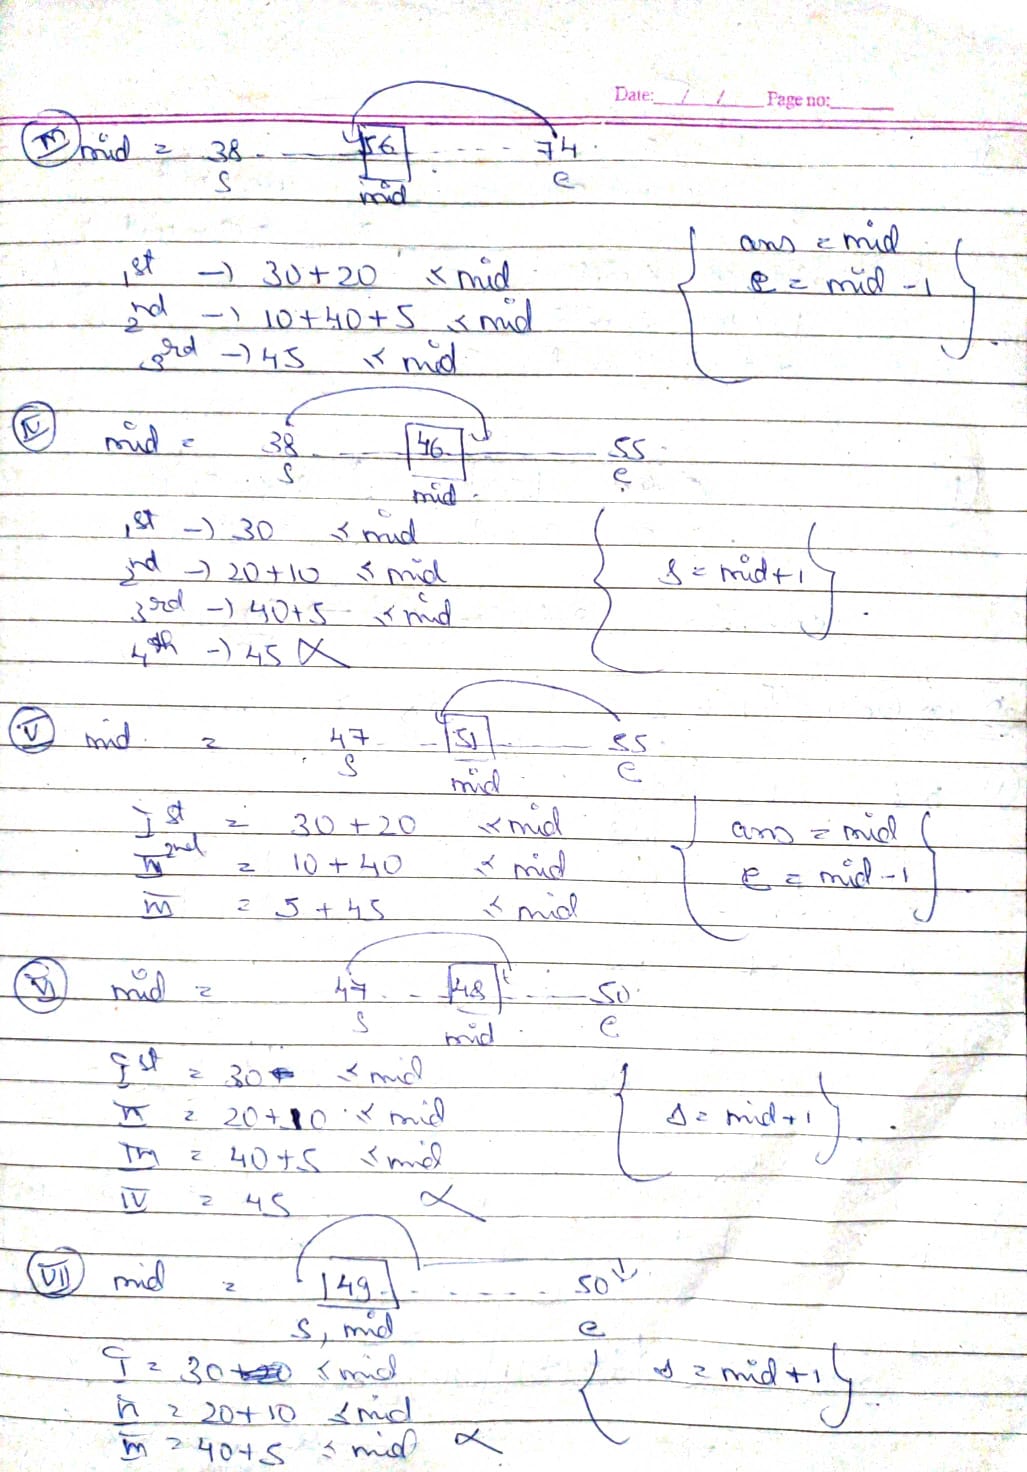 Date: / / Page no:
III mid = 38 56 74
S mid e
1st → 30+20 ≤ mid
2nd → 10+40+5 ≤ mid
3rd → 45 ≤ mid
{ ans = mid
e = mid -1 }
IV mid = 38 46 55
S mid e
1st → 30 ≤ mid
2nd → 20+10 ≤ mid
3rd → 40+5 ≤ mid
4th → 45 X
{ s = mid+1 }
V mid = 47 51 55
S mid e
Ist = 30+20 ≤ mid
II 2nd = 10+40 ≤ mid
III = 5+45 ≤ mid
{ ans = mid
e = mid -1 }
VI mid = 47 48 50
S mid e
Ist = 30 ≤ mid
II = 20+10 ≤ mid
III = 40+5 ≤ mid
IV = 45 X
{ s = mid+1 }
VII mid = 49 50
S, mid e
I = 30 ≤ mid
II = 20+10 ≤ mid
III = 40+5 ≤ mid X
{ s = mid+1 }